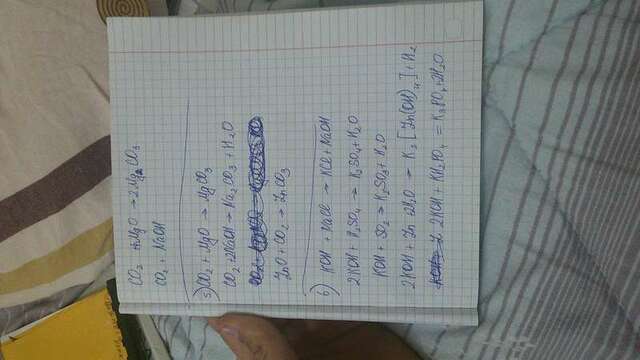 CO₂ + MgO → 2Mg₂CO₃
CO₂ + NaOH
5) CO₂ + MgO → MgCO₃
CO₂ + 2NaOH → Na₂CO₃ + H₂O
ZnO + CO₂ → ZnCO₃
6) KOH + NaCl → KCl + NaOH
2KOH + H₂SO₄ → K₂SO₄ + H₂O
KOH + SO₂ → K₂SO₃ + H₂O
2KOH + Zn + 2H₂O → K₂[Zn(OH)₄] + H₂
2KOH + KH₂PO₄ = K₃PO₄ + 2H₂O